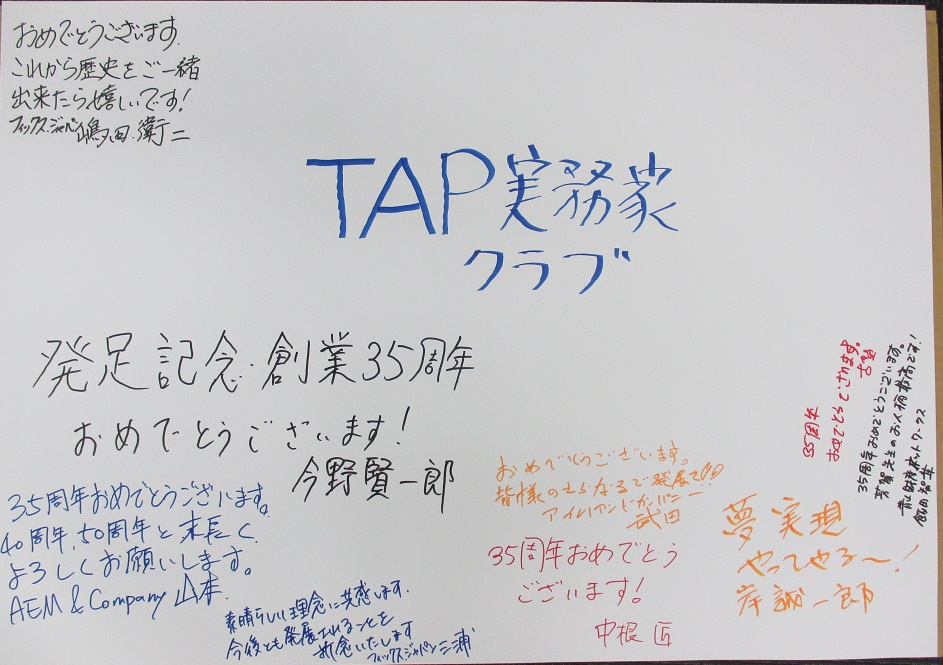 おめでとうございます.
これから歴史をご一緒
出来たら嬉しいです!
フィックス.ジャパン 嶋田.衛二
TAP実務家
クラブ
発足記念・創業35周年
おめでとうございます!
今野賢一郎
35周年おめでとうございます。
40周年,50周年と末長く
よろしくお願いします。
AEM & Company 山本.
素晴らしい理念に共感します.
今後とも発展されることを
祈念いたします
フィックスジャパン 三浦
おめでとうございます。
皆様のさらなるご発展を!!!
アイルアンドカンパニー
武田
35周年おめでとう
ございます!
中根 匠
夢実現
やってやる〜!
岸誠一郎
35周年
おめでとうございます
35周年おめでとうございます。
芳賀先生のお人柄最高です!
青山財産ネットワークス